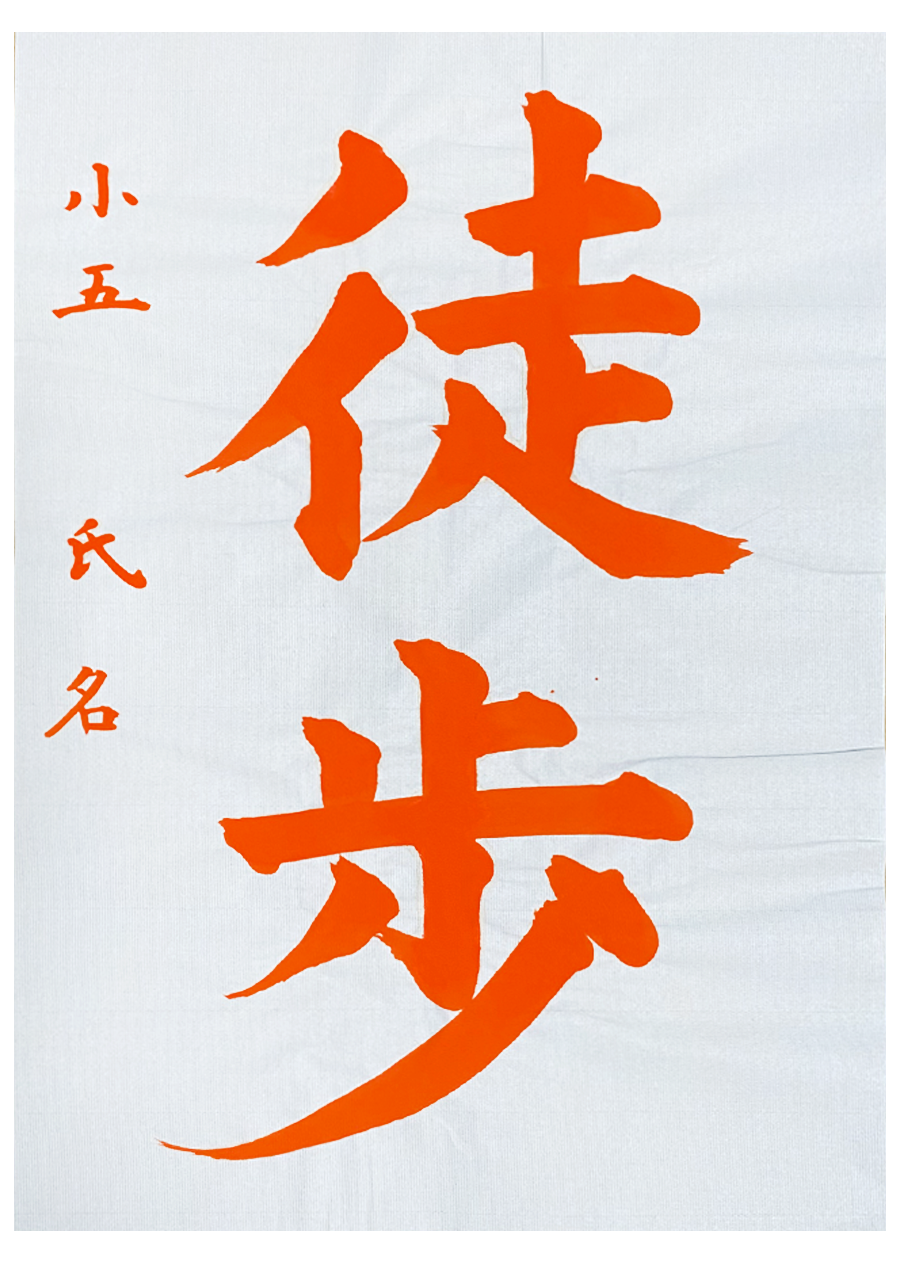 徒歩
小五 氏名